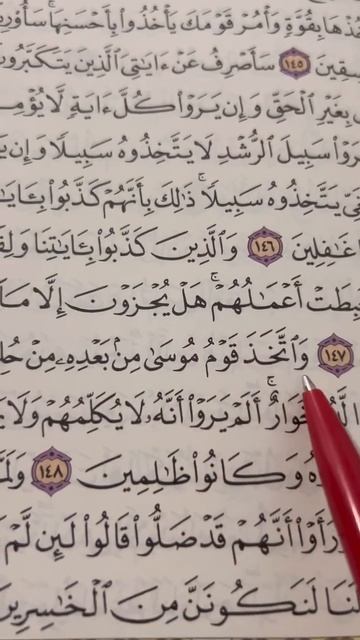 بِقُوَّةٍ وَأْمُرْ قَوْمَكَ يَأْخُذُوا۟ بِأَحْسَنِهَا ۚ
١٤٥ سَأَصْرِفُ عَنْ ءَايَٰتِىَ ٱلَّذِينَ يَتَكَبَّرُونَ
بِغَيْرِ ٱلْحَقِّ وَإِن يَرَوْا۟ كُلَّ ءَايَةٍ لَّا
سَبِيلَ ٱلرُّشْدِ لَا يَتَّخِذُوهُ سَبِيلًا وَإِن
يَتَّخِذُوهُ سَبِيلًا ۚ ذَٰلِكَ بِأَنَّهُمْ كَذَّبُوا۟
غَٰفِلِينَ ١٤٦ وَٱلَّذِينَ كَذَّبُوا۟ بِـَٔايَٰتِنَا
أَعْمَٰلُهُمْ ۚ هَلْ يُجْزَوْنَ إِلَّا مَا
١٤٧ وَٱتَّخَذَ قَوْمُ مُوسَىٰ مِنۢ بَعْدِهِۦ مِنْ
خُوَارٌ ۚ أَلَمْ يَرَوْا۟ أَنَّهُۥ لَا يُكَلِّمُهُمْ وَلَا
وَكَانُوا۟ ظَٰلِمِينَ ١٤٨
أَنَّهُمْ قَدْ ضَلُّوا۟ قَالُوا۟ لَئِن لَّمْ
لَنَكُونَنَّ مِنَ ٱلْخَٰسِرِينَ